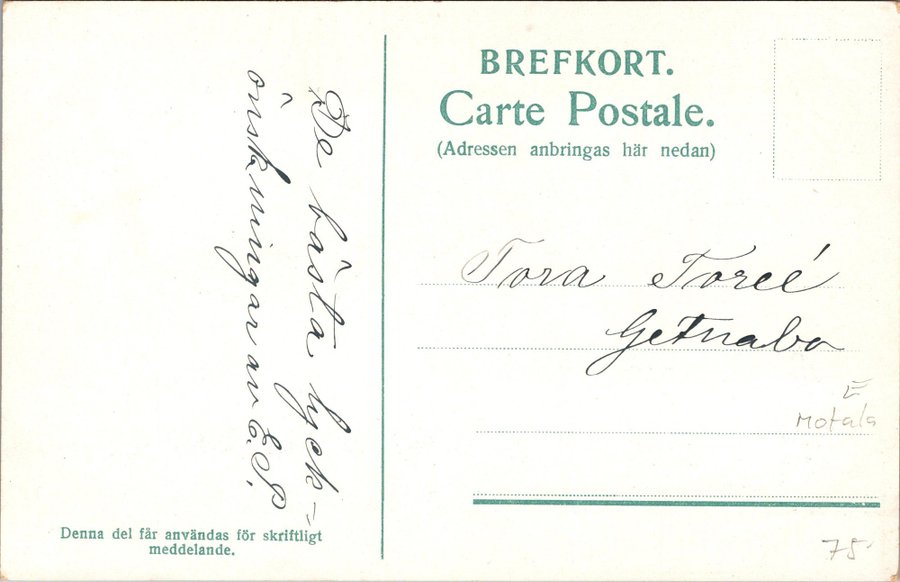 De bästa lyck=
önskningar av E. P.
Denna del får användas för skriftligt
meddelande.
BREFKORT.
Carte Postale.
(Adressen anbringas här nedan)
Tora Toreé
Getnabo
E
Motala
75-